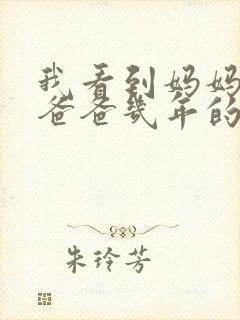 我看到妈妈
爸爸几年的
朱玲芳